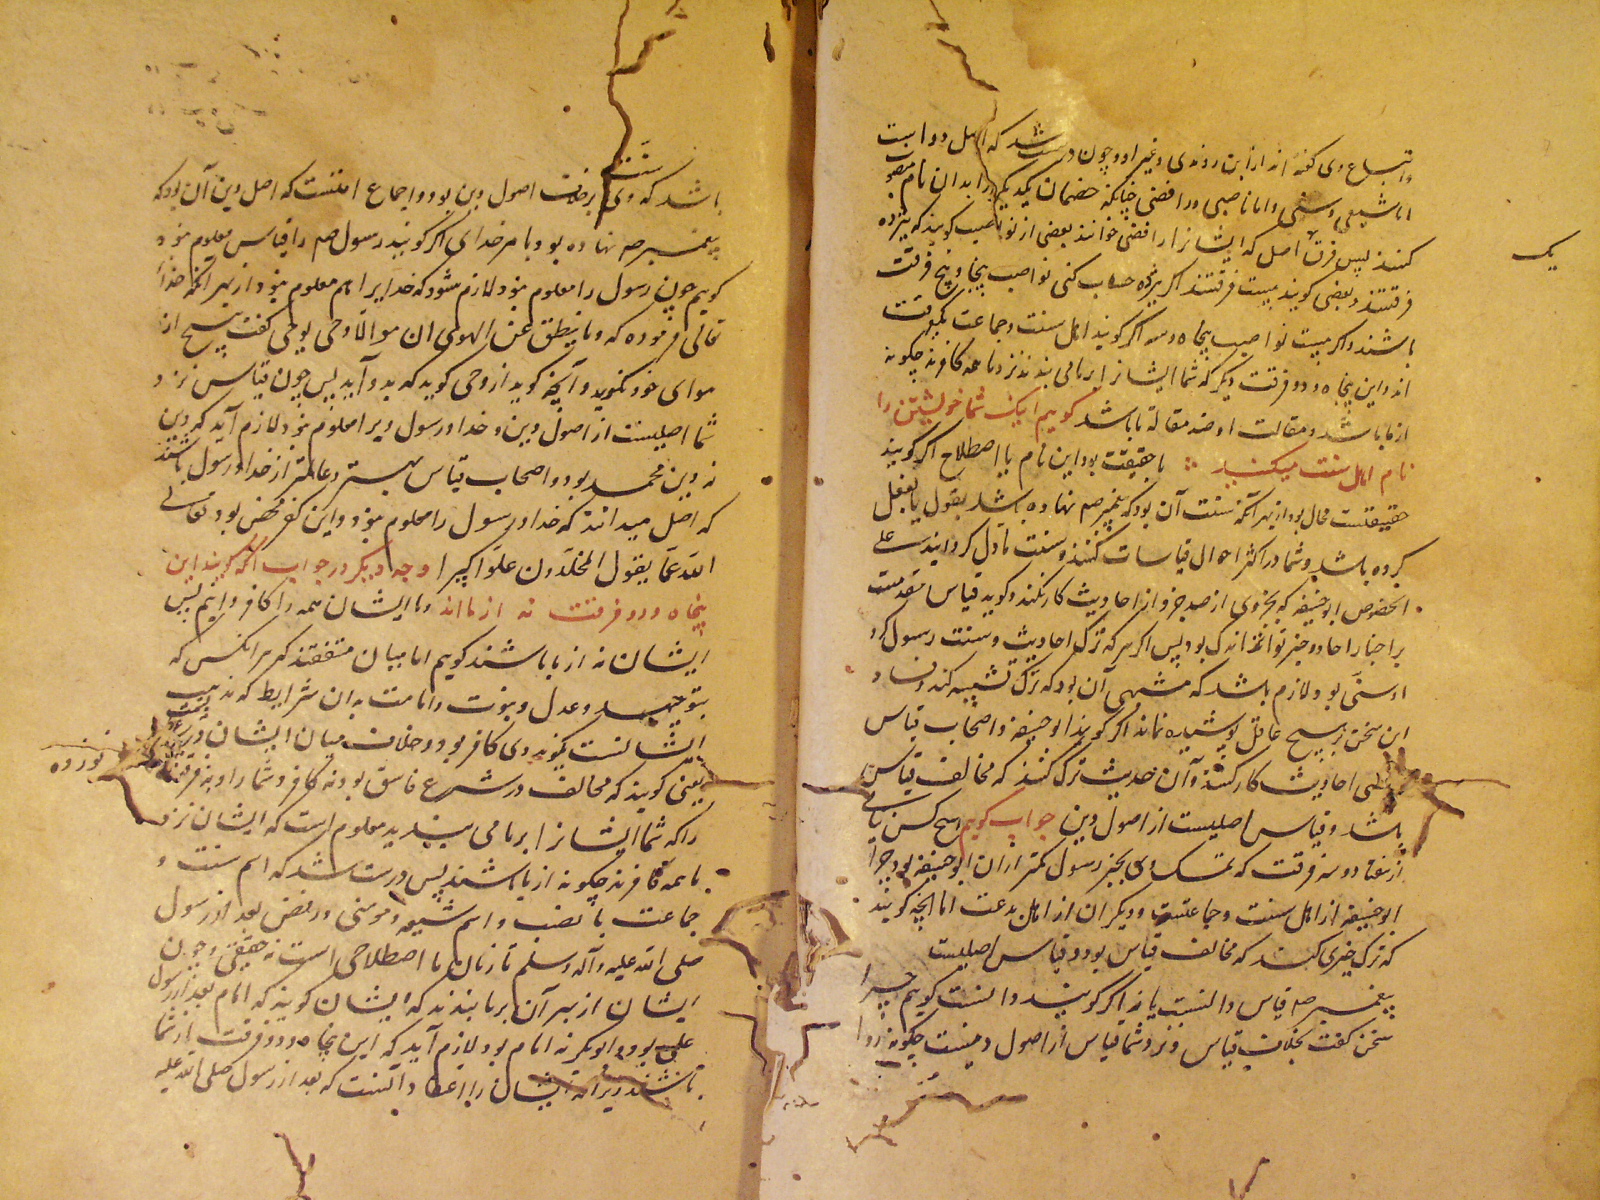 واتباع وی گفته اند از ابن روندی و غیر او و چون درست شد که اهل دو است
اما شیعی و سنی و اما ناصبی و رافضی چنانکه خصمان یکدیگر را بدان نام
کنند پس فرق اصل که ایشانرا رافضی خوانند بعضی از نواصب گویند که پنزده
یک
فرقتند و بعضی گویند بیست فرقتند اگر پنزده حساب کنی نواصب پنجاه و پنج فرقت
باشند و اگر بیست نواصب پنجاه و سه اگر گویند اهل سنت و جماعت یکفرقت
اند و این پنجاه و دو فرقت دیگر که شما ایشانرا بر ما می بندند نزد ما همه کافرند چگونه
از ما باشد و مقالت او ضد مقالة ما باشد گوییم اینک شما خویشتن را
نام اهل سنت میکنید با حقیقت بود این نام یا اصطلاح اگر گویند
حقیقتست محال بود از بهر آنکه سنت آن بود که پیغمبر صم نهاده باشد بقول یا بفعل
کرده باشد و شما در اکثر احوال قیاسات کنند و سنت
الخصوص ابو حنیفه که بجزوی از صد جزو از احادیث کار نکند و گوید قیاس مقدمست
بر اخبار احاد و جز تواتر اندک بود پس اگر هر که ترک احادیث و سنت رسول کرد
او سنی بود لازم باشد که مشبهی آن بود که ترک تشبیه کند و فساد
این سخن بر هیچ عاقل پوشیده نماند اگر گویند ابو حنیفه و اصحاب قیاس
احادیث کار کنند و آن حدیث ترک کنند که مخالف قیاس
باشد و قیاس اصلیست از اصول دین جواب گوییم هیچ کس
از هفتاد و سه فرقت که تمسک وی بخبر رسول کمتر از ان ابو حنیفه بود چرا
ابو حنیفه از اهل سنت و جماعتست و دیگران از اهل بدعت اما آنچه گویند
که ترک خبری کند که مخالف قیاس بود و قیاس اصلیست
پیغمبر صم قیاس دانست یا نه اگر گویند دانست گوییم چرا
سخن گفت بخلاف قیاس و نزد شما قیاس از اصول دینست چگونه روا
باشد که وی بر خلاف اصول دین بود و اجماع امتست که اصل دین آن بود که
پیغمبر صم نهاده بود بامر خدای اگر گویند رسول صم را قیاس معلوم نبود
گوییم چون رسول را معلوم نبود لازم شود که خدایرا هم معلوم نبود از بهر آنکه خدا
تعالی فرموده که و ما ینطق عن الهوی ان هو الا وحی یوحی گفت هیچ از
هوای خود نگوید و آنچه گوید از وحی گوید که بدو آید پس چون قیاس نزد
شما اصلیست از اصول دین و خدا و رسول ویرا معلوم نبود لازم آید که دین
نه دین محمد بود و اصحاب قیاس بهتر و عالمتر از خدا و رسول باشند
که اصل میدانند که خدا و رسول را معلوم نبود و این کفر محض بود تعالی
الله عما یقول الملحدون علوا کبیرا وجه دیگر در جواب آنکه گویند این
پنجاه و دو فرقت نه از ما اند و ما ایشان همه را کافر دانیم پس
ایشان نه از ما باشند گوییم امامیان متفقند که هر آنکس که
بتوحید و عدل و نبوت و امامت بدان شرایط که مذهب
ایشانست نگوید وی کافر بود و خلاف میان ایشان
یعنی گویند که مخالف در شرع فاسق بود نه کافر و شما را
نوزده
را که شما ایشانرا بر ما می بندید معلوم است که ایشان نزد
ما همه کافرند چگونه از ما باشند پس درست شد که اسم سنت و
جماعت با نصب و اسم شیعه و مومنی و رفض بعد از رسول
صلی الله علیه و آله و سلم تا زمان ما اصطلاحی است نه حقیقی و چون
ایشان از بهر آن بر ما بندند که ایشان گویند که امام بعد از رسول
علی بود و ابو بکر نه امام بود لازم آید که این پنجاه و دو فرقت از شما
باشند زیرا که ایشان را اعتقاد آنست که بعد از رسول صلی الله علیه